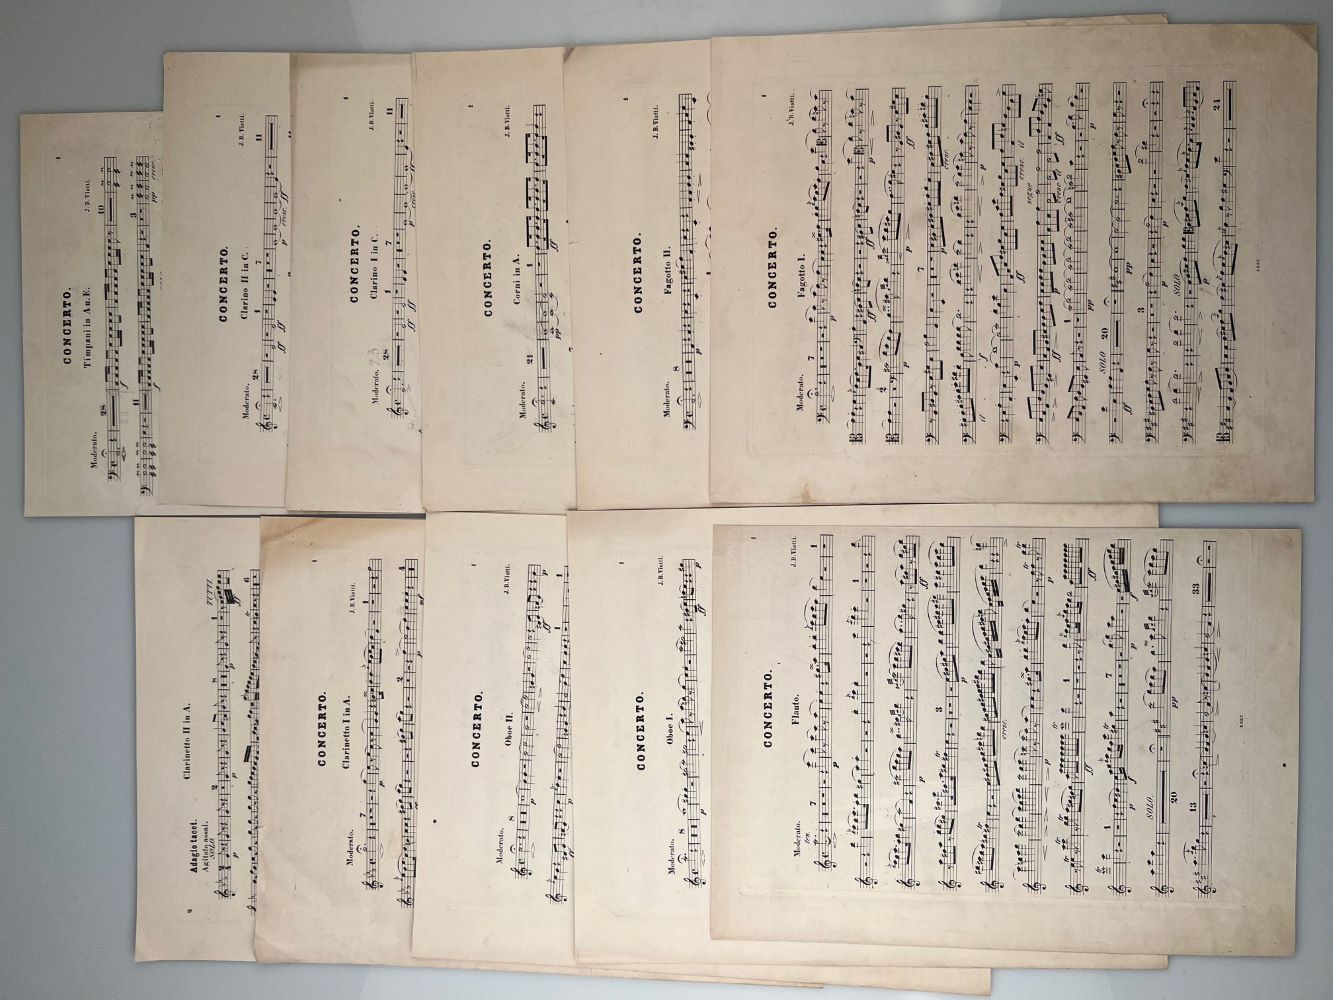 1
CONCERTO.
Timpani in A u. E.
Moderato.
J. B. Viotti.
28
10
f
11
3
cresc.
pp
1
CONCERTO.
Clarino II in C.
Moderato.
J. B. Viotti.
28
1
7
11
ff
p
cresc
ff
1
CONCERTO.
Clarino I in C.
Moderato.
J. B. Viotti.
28
1
7
11
ff
p
cresc
ff
1
CONCERTO.
Corni in A.
Moderato.
J. B. Viotti.
21
1
pp
ff
1
CONCERTO.
Fagotto II.
Moderato.
J. B. Viotti.
8
p
1
CONCERTO.
Fagotto I.
Moderato.
J. B. Viotti.
7
p
ff
p
2
p
ff
7
p
cresc.
f
p
p
ff
cresc. il
ff
segue
cresc.
ff
1
pp
p
SOLO
20
ff
pp
2
3
p
SOLO
p
21
2
Adagio tacet.
Clarinetto II in A.
Agitato assai.
SOLO.
TUTTI.
p
2
p
8
p
1
ff
6
1
CONCERTO.
Clarinetto I in A.
Moderato.
J. B. Viotti.
7
p
2
4
1
CONCERTO.
Oboe II.
Moderato.
J. B. Viotti.
8
p
ff
p
ff
p
1
1
1
CONCERTO.
Oboe I.
Moderato.
J. B. Viotti.
8
p
ff
1
CONCERTO.
Flauto.
Moderato.
J. B. Viotti.
ten.
7
p
1
1
3
p
cresc.
tr
p
tr
1
ff
ff
tr
1
7
f
p
f
p
SOLO.
20
pp
13
33